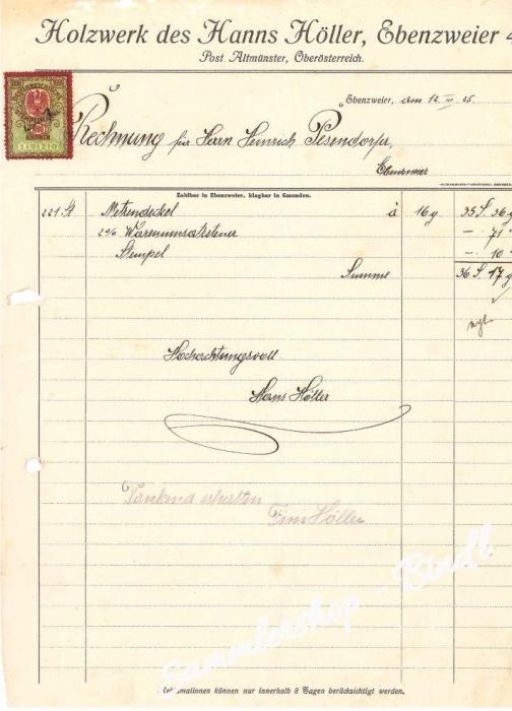 Holzwerk des Hanns Höller, Ebenzweier 4
Post Altmünster, Oberösterreich.
Ebenzweier, den 12. III. 25.
Rechnung für Herrn Heinrich Pesendorfer,
Ebenzweier
Zahlbar in Ebenzweier, klagbar in Gmunden.
221 St Metzendeckel à 16 g 35 S 36 g
2% Warenumsatzsteuer — 71
Stempel — 10
Summe 36 S 17 g
Hochachtungsvoll
Hans Höller
Dankend erhalten
Höller
Sammlershop - Bindl
Reklamationen können nur innerhalb 8 Tagen berücksichtigt werden.